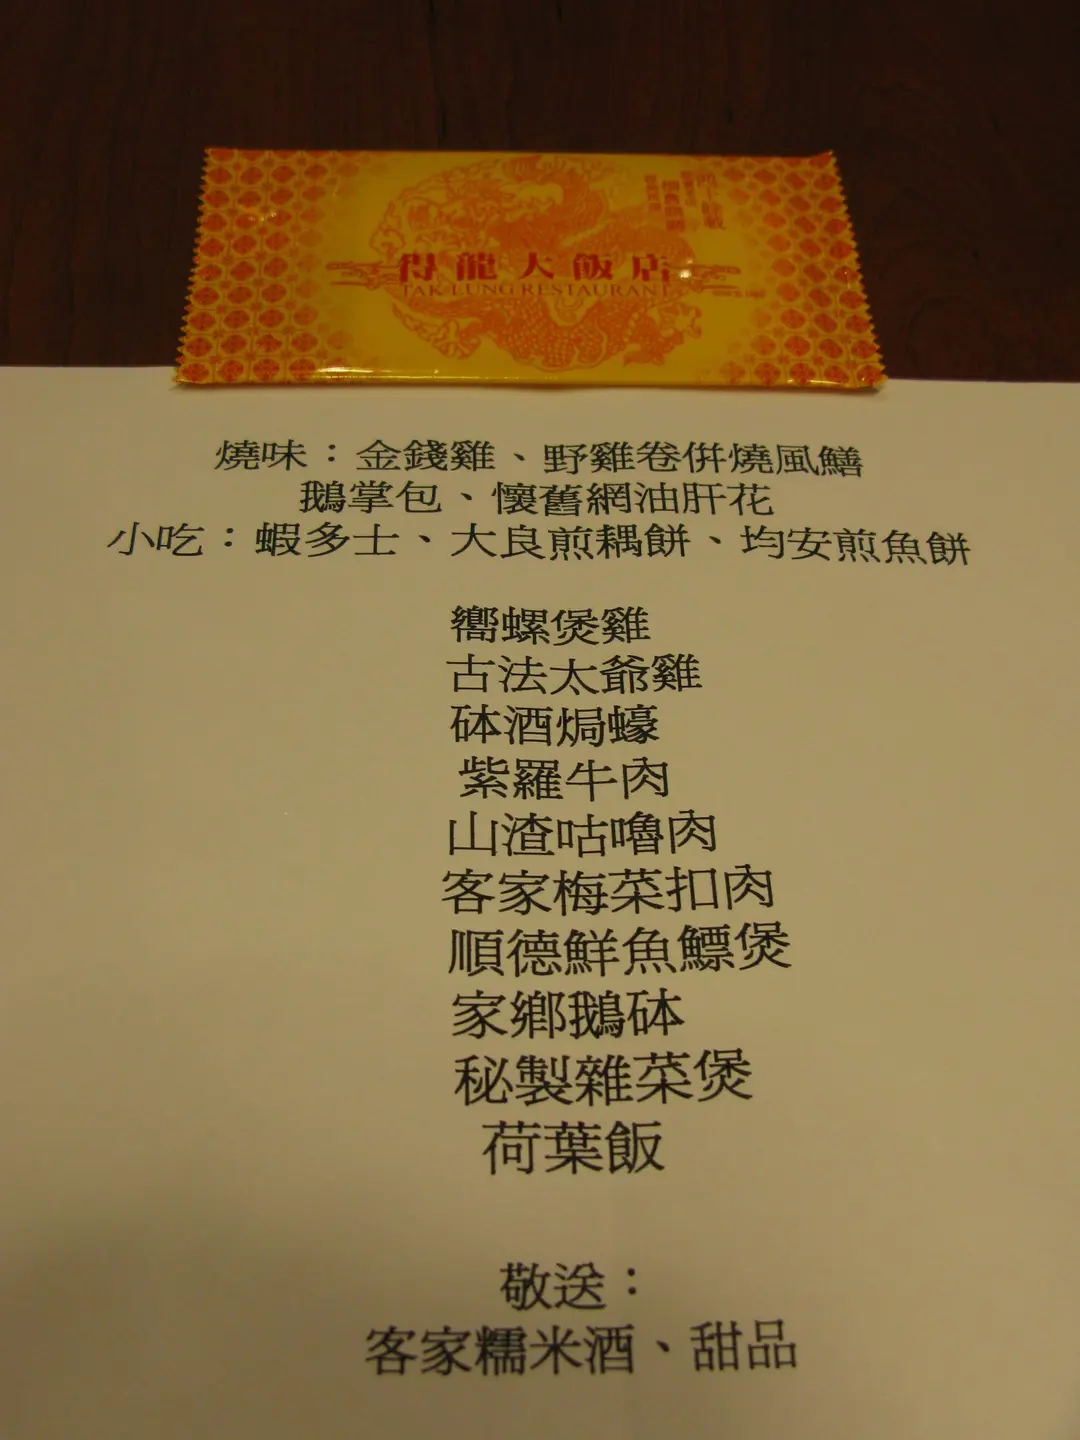 得龍大飯店
TAK LUNG RESTAURANT
燒味：金錢雞、野雞卷併燒風鱔
鵝掌包、懷舊網油肝花
小吃：蝦多士、大良煎耦餅、均安煎魚餅
嚮螺煲雞
古法太爺雞
砵酒焗蠔
紫羅牛肉
山渣咕嚕肉
客家梅菜扣肉
順德鮮魚鰾煲
家鄉鵝砵
秘製雜菜煲
荷葉飯
敬送：
客家糯米酒、甜品